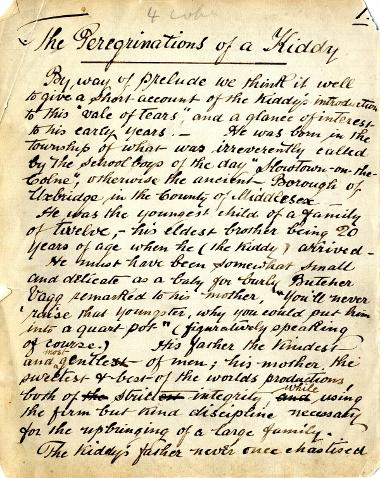 4 cols
1.
The Peregrinations of a Kiddy
By way of prelude we think it well
to give a short account of the Kiddy's introduction
to this "vale of tears", and a glance of interest
to his early years. — He was born in the
township of what was irreverently called
by the school boys of the day "Slowtown-on-the-
Colne", otherwise the ancient Borough of
Uxbridge, in the County of Middlesex —
He was the youngest child of a family
of twelve, — his eldest brother being 20
years of age when he (the Kiddy) arrived —
He must have been somewhat small
and delicate as a baby for burly Butcher
Fagg remarked to his mother, "You'll never
'raise that youngster, why you could put him
into a quart pot" (figuratively speaking
of course.) His father the kindest
and most gentlest of men; his mother, the
purest & best of the worlds productions
both of the integrity, and while using
the firm but kind discipline necessary
for the upbringing of a large family.
The Kiddy's father never once chastised